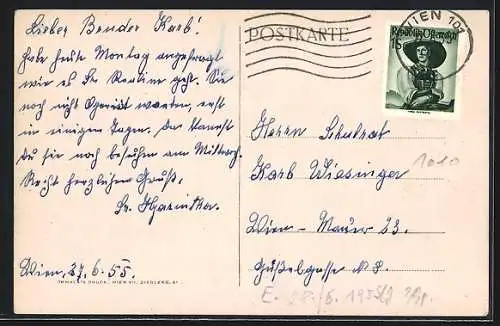 Lieber Bruder Karl!
Habe heute Montag angefragt
wie es Sr. geht. Sie
noch nicht Operiert worden, erst
in einigen Tagen. Du kannst
Du sie noch besuchen am Mittwoch.
Recht herzlichen Gruß,
Sr.
Wien, 27.6.55.
POSTKARTE
WIEN 101
Republik Österreich
Herrn Schulrat
Karl Wiesinger
1010
Wien – Mauer 23.
N 8.
E. 28./6. 1955